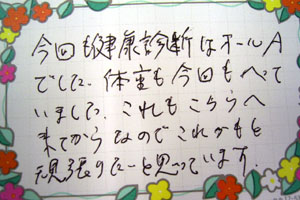 今回も健康診断はオールA
でした。体重も今回もへって
いました。これもこちらへ
来てからなのでこれからも
頑張りたーと思っています。